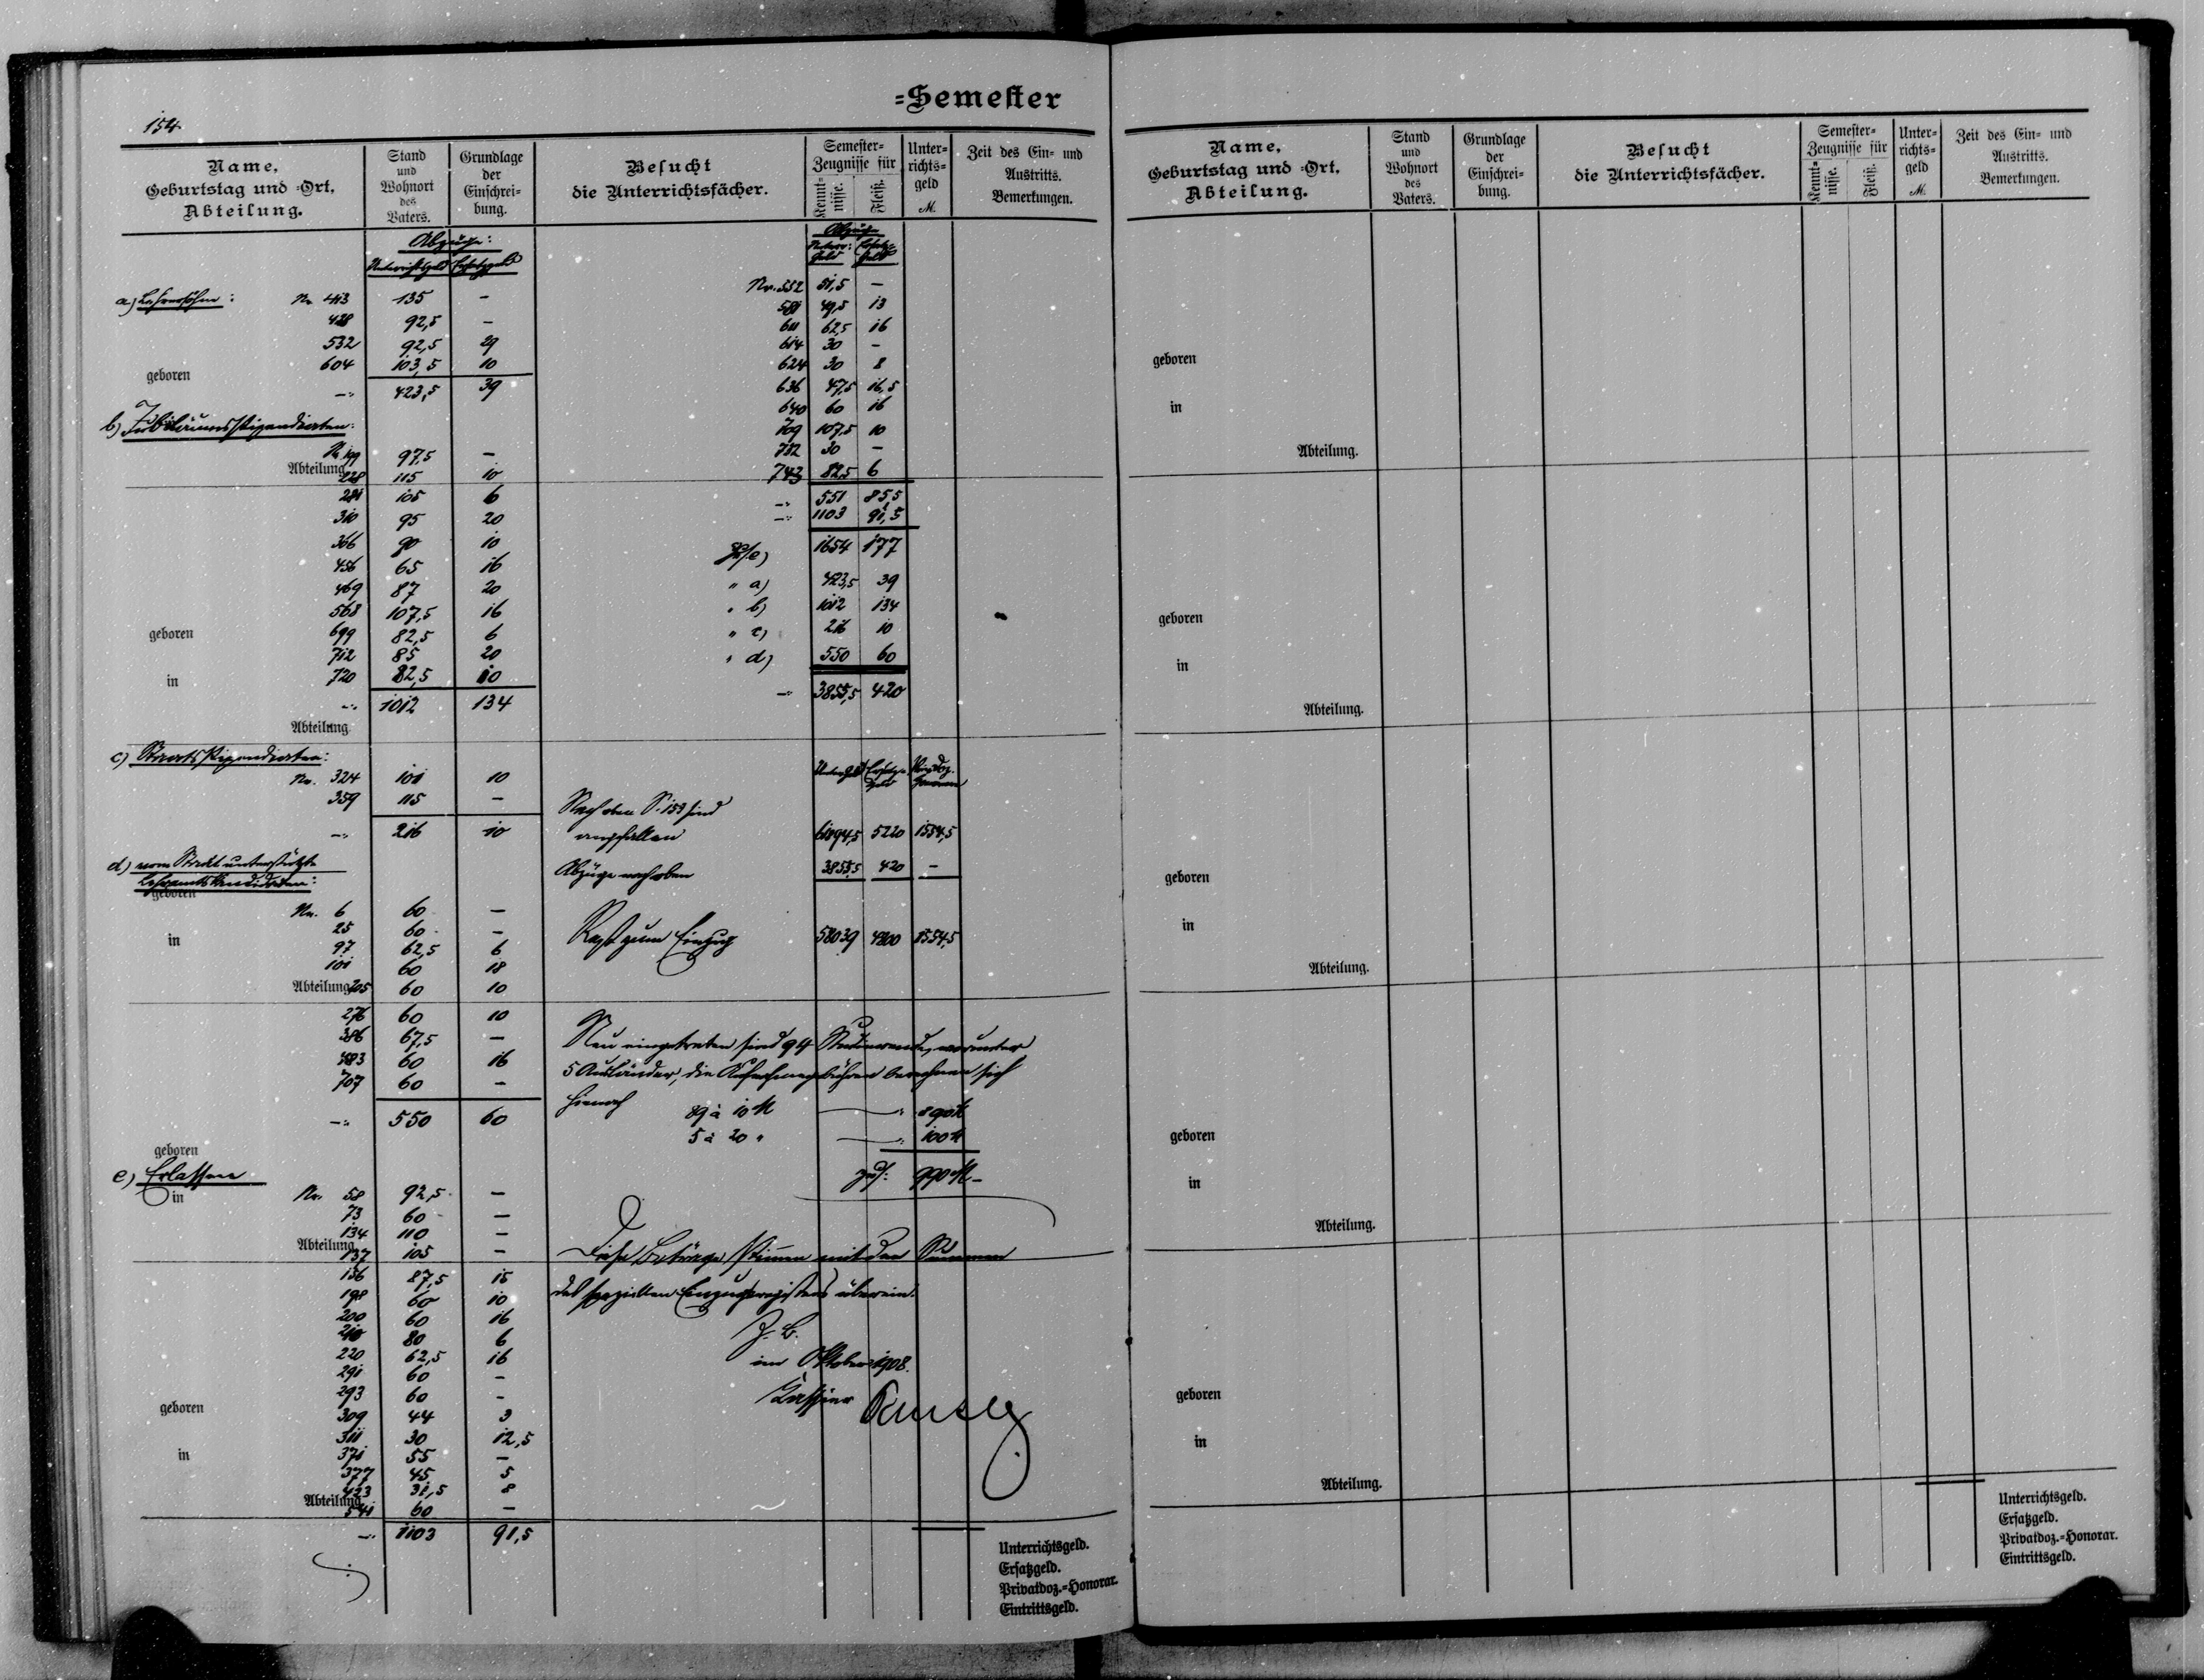 =Semester
154.
Name,
Geburtstag und =Ort,
Abteilung.
Stand
und
Wohnort
des
Vaters.
Grundlage
der
Einschrei=
bung.
Besucht
die Unterrichtsfächer.
Semester=
Zeugnisse für
Kennt=
nisse.
Fleiß.
Unter=
richts=
geld
M.
Zeit des Ein= und
Austritts.
Bemerkungen.
Abzüge:
Unterrichtsgeld Ersatzgeld
a) Lehrersöhne: Nr. 413 135 —
428 92,5 —
532 92,5 29
604 103,5 10
geboren
—: 423,5 39
b) Jubiläumsstipendiaten:
Nr. 199 97,5 —
Abteilung
228 115 10
281 105 6
310 95 20
366 90 10
456 65 16
469 87 20
568 107,5 16
geboren
699 82,5 6
712 85 20
in
720 82,5 10
—: 1012 134
Abteilung.
c) Staatsstipendiaten:
Nr. 324 101 10
359 115 —
—: 216 10
d) vom Staat unterstützte
Lehramtskandidaten:
geboren
Nr. 6 60 —
25 60 —
in
97 62,5 6
101 60 18
Abteilung 205 60 10
276 60 10
386 67,5 —
483 60 16
707 60 —
—: 550 60
geboren
e) Erlassen
in
Nr. 58 92,5 —
73 60 —
134 110 —
Abteilung
137 105 —
156 87,5 15
198 60 10
200 60 16
210 80 6
220 62,5 16
291 60 —
293 60 —
geboren
309 44 3
311 30 12,5
in
371 55 —
377 45 5
423 31,5 8
Abteilung
541 60 —
—: 1103 91,5
Abzüge
Unterr: Ersatz=
Geld Geld
Nr. 552 51,5 —
581 49,5 13
611 62,5 16
614 30 —
624 30 8
636 47,5 16,5
640 60 16
709 107,5 10
732 30 —
743 82,5 6
—: 551 85,5
—: 1103 91,5
1654 177
" a) 423,5 39
" b) 1012 134
" c) 216 10
" d) 550 60
—: 3855,5 420
Nach oben S. 153 sind
angefallen 61894,5 5220 1554,5
Abzüge nach oben 3855,5 420 —
Rest zum Einzug 58039 4800 1554,5
Neu eingetreten sind 94 Studierende, worunter
5 Ausländer, die Aufnahmegebühren berechnen sich
hienach 89 à 10 M —: 890 M
5 à 20 " —: 100 M
zus: 990 M —
Diese Beträge stimmen mit den Summen
des speziellen Einzugsregisters überein.
Z. B.
im Oktober 1908.
Kassier
Unterrichtsgeld.
Ersatzgeld.
Privatdoz.=Honorar.
Eintrittsgeld.
Name,
Geburtstag und =Ort,
Abteilung.
Stand
und
Wohnort
des
Vaters.
Grundlage
der
Einschrei=
bung.
Besucht
die Unterrichtsfächer.
Semester=
Zeugnisse für
Kennt=
nisse.
Fleiß.
Unter=
richts=
geld
M.
Zeit des Ein= und
Austritts.
Bemerkungen.
geboren
in
Abteilung.
geboren
in
Abteilung.
geboren
in
Abteilung.
geboren
in
Abteilung.
geboren
in
Abteilung.
Unterrichtsgeld.
Ersatzgeld.
Privatdoz.=Honorar.
Eintrittsgeld.